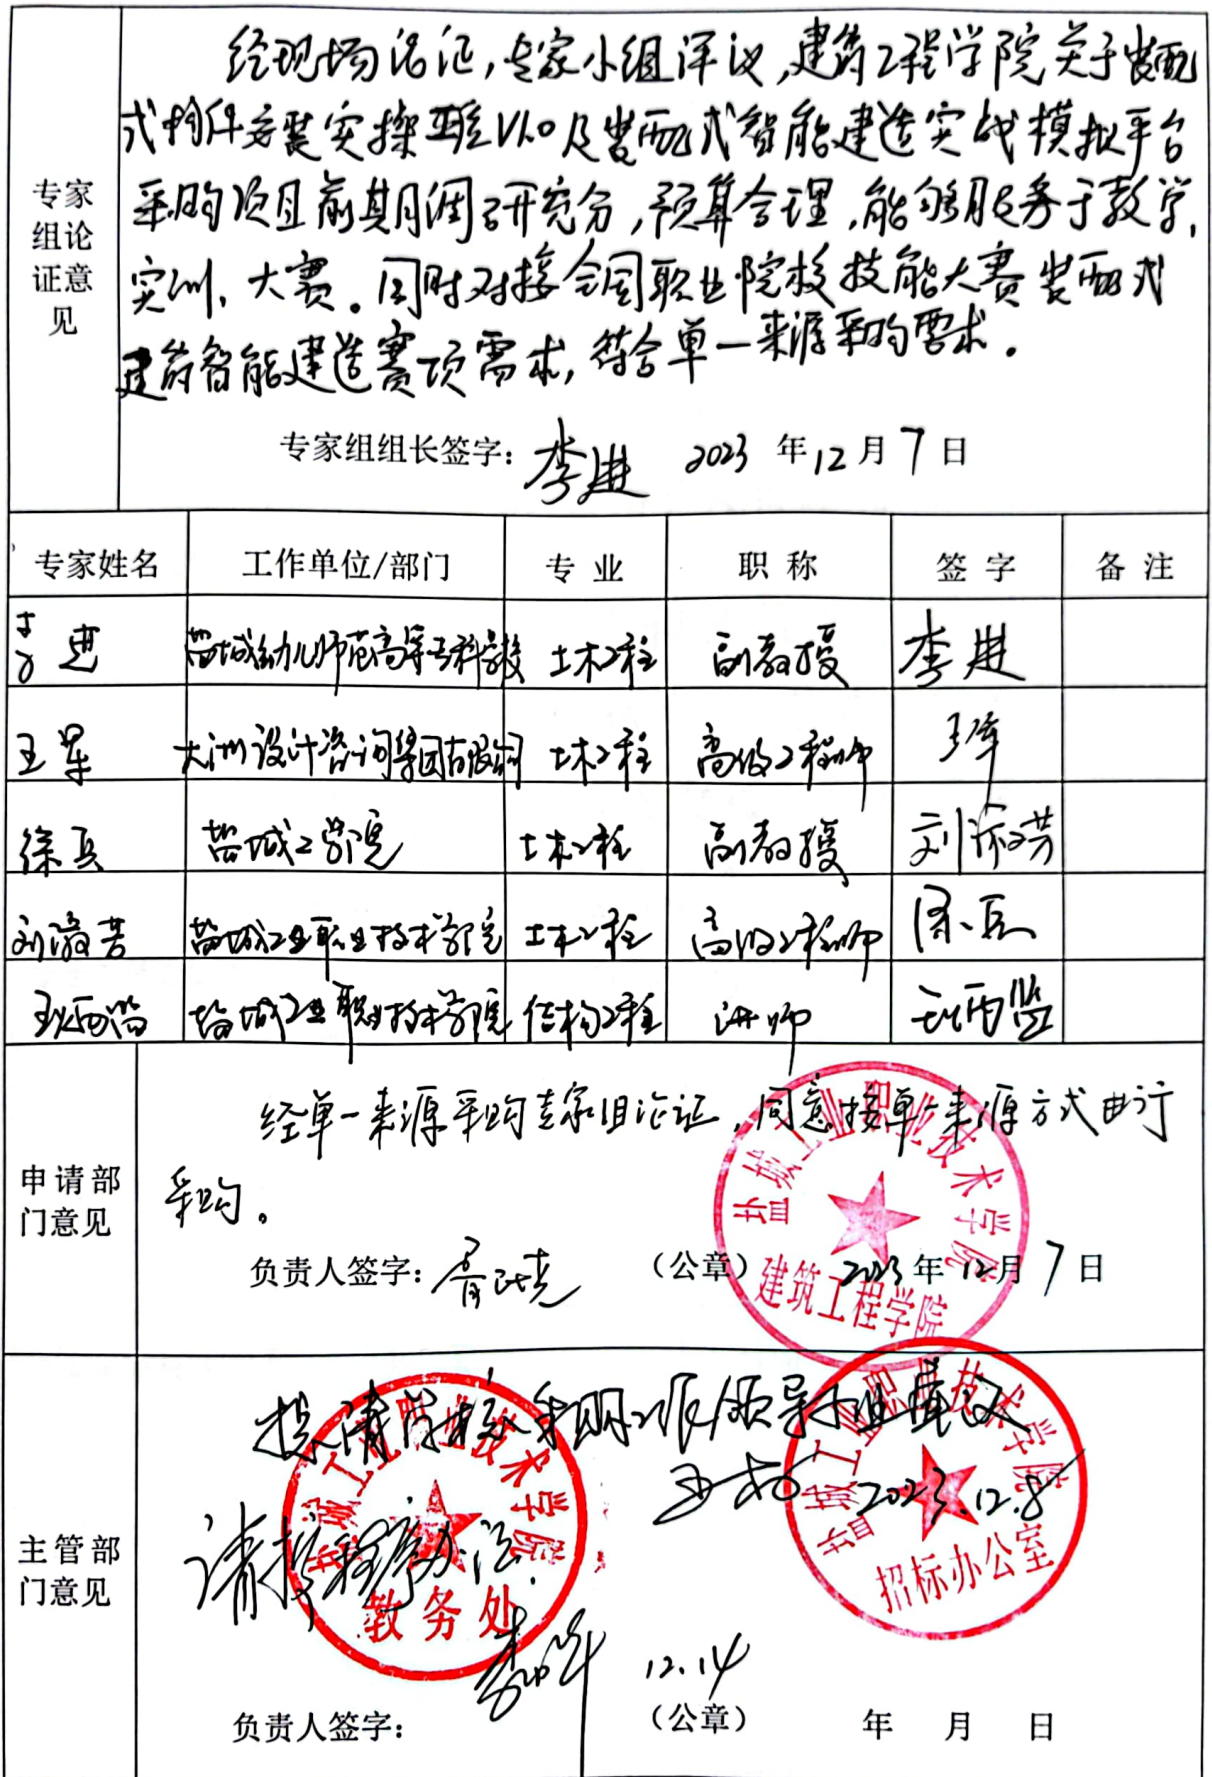 专家
组论
证意
见
经现场论证,专家小组评议,建筑工程学院关于装配
式构件安装实操 V1.0及装配式智能建造实战模拟平台
采购项目前期调研充分,预算合理,能够服务于教学、
实训、大赛。同时对接全国职业院校技能大赛装配式
建筑智能建造赛项需求,符合单一来源采购要求。
专家组组长签字: 李进 2023 年 12 月 7 日
专家姓名 工作单位/部门 专 业 职 称 签 字 备 注
李进 盐城幼儿师范高等专科学校 土木工程 副教授 李进
王军 大洲设计咨询集团有限公司 土木工程 高级工程师 王军
徐兵 盐城工学院 土木工程 副教授 刘淑芳
刘淑芳 盐城工业职业技术学院 土木工程 高级工程师 徐兵
盐城工业职业技术学院 结构工程 讲师
申请部
门意见
经单一来源采购专家组论证,同意按单一来源方式进行
采购。
负责人签字: (公章) 2023 年 12 月 7 日
盐城工业职业技术学院
建筑工程学院
主管部
门意见
提请学校采购工作领导小组审议
2023.12.8
盐城工业职业技术学院
招标办公室
请按程序办理.
盐城工业职业技术学院
教务处
12.14
负责人签字: (公章) 年 月 日